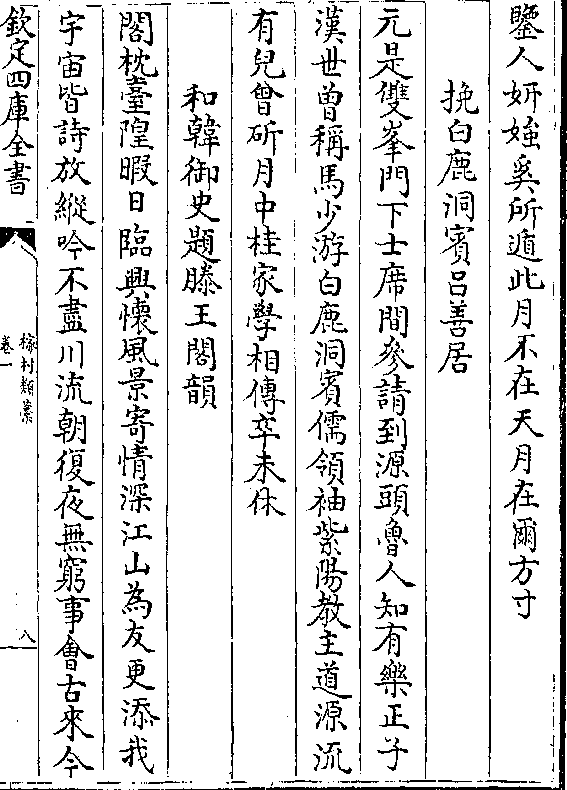 鑒人妍媸奚所遁此月不在天月在爾方寸
挽白鹿洞賓呂善居
元是雙峯門下士席間參請到源頭魯人知有樂正子
漢世曾稱馬少游白鹿洞賓儒領袖紫陽教主道源流
有兒曾斫月中桂家學相傳卒未休
和韓御史題滕王閣韻
閣枕臺隍暇日臨興懷風景寄情深江山為友更添我
宇宙皆詩放縱吟不盡川流朝復夜無窮事會古來今
欽定四庫全書
椽村類藁
卷一
八